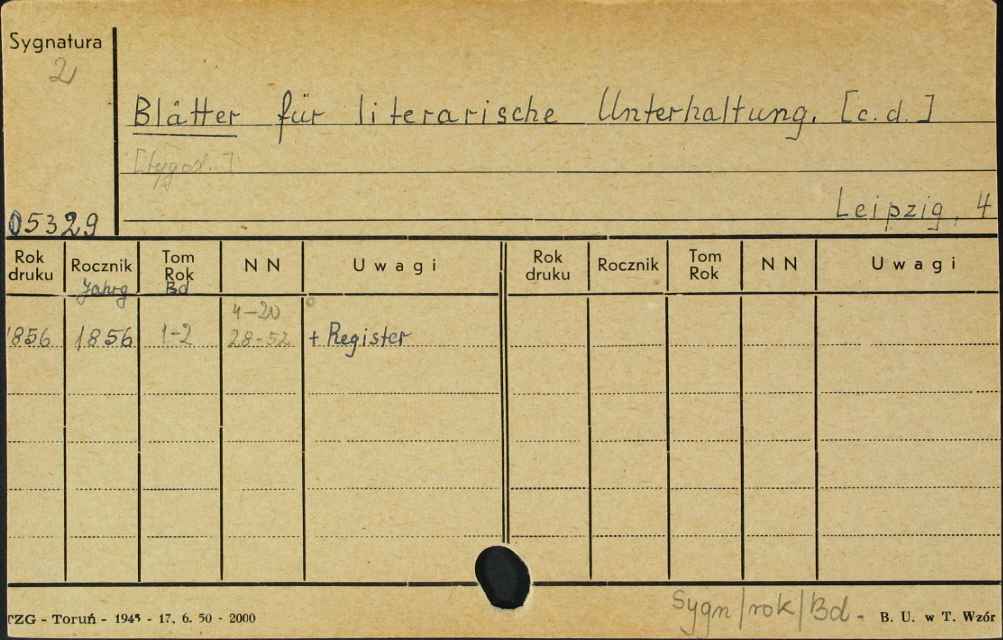 Sygnatura
2
Blätter für literarische Unterhaltung. [c.d.]
[tygod..]
Leipzig, 4
05329
Rok druku Rocznik Tom Rok N N Uwagi Rok druku Rocznik Tom Rok N N Uwagi
Jahrg Bd
4-20
1856 1856 1-2 28-52 + Register
Sygn/rok/Bd.
TZG - Toruń - 1945 - 17. 6. 50 - 2000 B. U. w T. Wzór